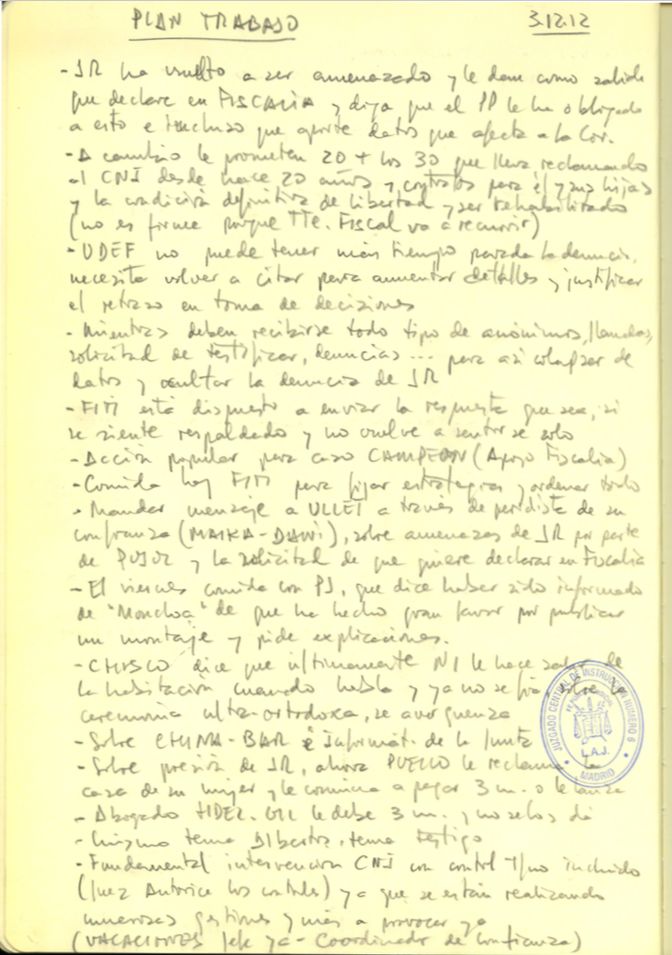 PLAN TRABAJO 3.12.12
- JR ha vuelto a ser amenazado y le dan como salida
que declare en FISCALIA y diga que el PP le ha obligado
a esto e incluso que aporte datos que afecta a la Cor.
- A cambio le prometen 20 + los 30 que lleva reclamando
al CNI desde hace 20 años y contratos para él y sus hijas
y la condición definitiva de libertad y ser rehabilitado
(no es firme porque TTe. Fiscal va a recurrir)
- UDEF no puede tener más tiempo parada la denuncia,
necesita volver a citar para aumentar detalles y justificar
el retraso en toma de decisiones
- Mientras deben recibirse todo tipo de anónimos, llamadas,
solicitud de testificar, denuncias... para así colapsar de
datos y ocultar la denuncia de JR
- FITI está dispuesto a enviar la respuesta que sea, si
se siente respaldado y no vuelve a sentirse solo
- Acción popular para caso CAMPEON (Apoyo Fiscalia)
- Comida hoy FITI para fijar estrategias y ordenar todo
- Mandar mensaje a ULLET a través de periodista de su
confianza (MAIKA-DANI), sobre amenazas de JR por parte
de PUJOL y la solicitud de que quiere declarar en Fiscalia
- El viernes comida con PJ, que dice haber sido informado
de "Moncloa" de que ha hecho gran favor por publicar
un montaje y pide explicaciones.
- CHISCO dice que últimamente NI le hace salir de
la habitación cuando habla y ya no se fía, sobre la
ceremonia ultra-ortodoxa, se averguenza
- Sobre CHINA-BAR é Informát. de la Junta
- Sobre presión de JR, ahora le reclama la
casa de su mujer y le conmina a pagar 3 m. o le lanza
- Abogado le debe 3 m. y no se los dá
- tema tema testigo
- Fundamental intervención CNI con control Tfno incluido
(Juez Autorice los controles) ya que se están realizando
numerosas gestiones y más a provocar ya
(VACACIONES Jefe ya - Coordinador de confianza)
JUZGADO CENTRAL DE INSTRUCCIÓN NUMERO 6
L.A.J.
MADRID